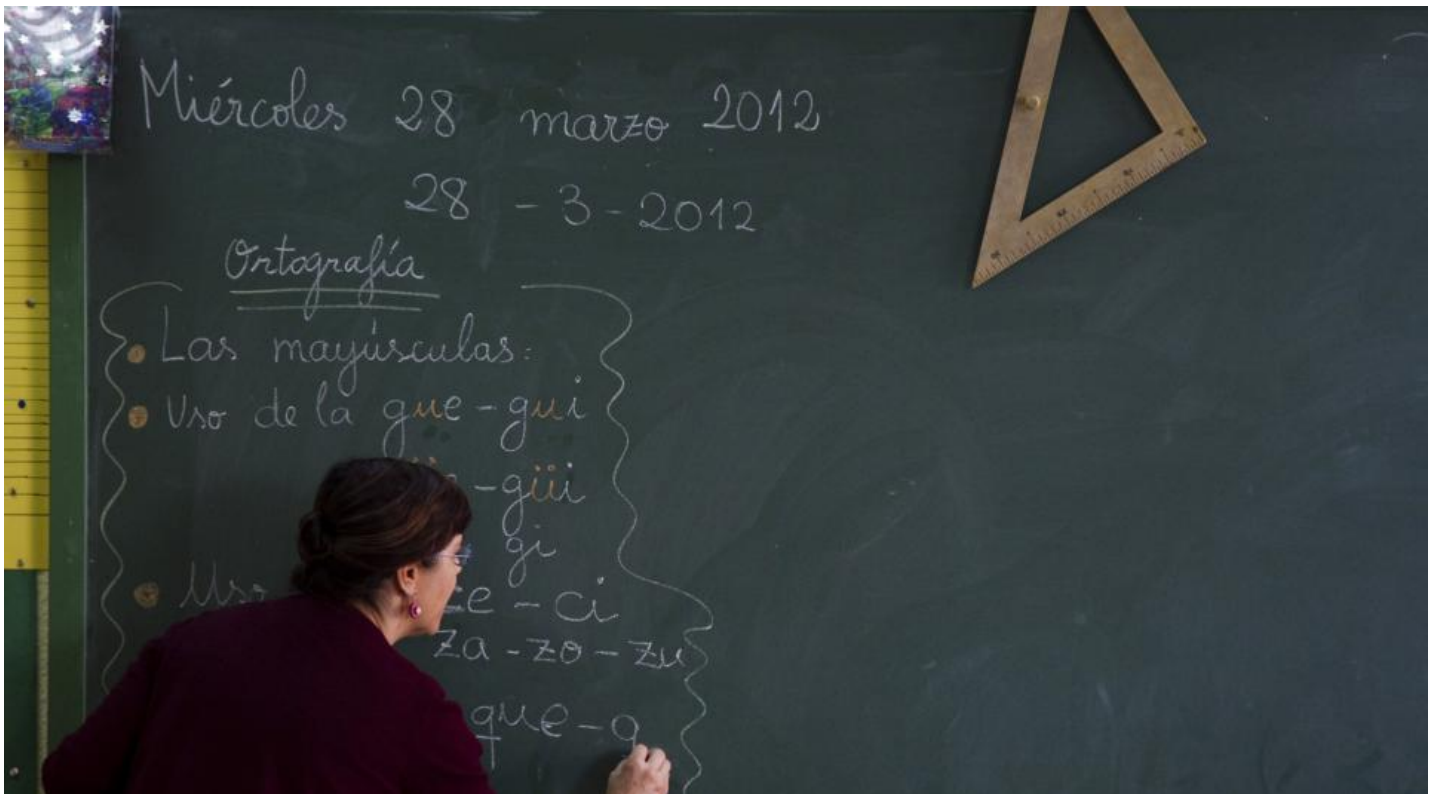 Miércoles 28 marzo 2012
28 - 3 - 2012
Ortografía
Las mayúsculas:
Uso de la gue - gui
- güi
gi
- ci
za - zo - zu
que - q